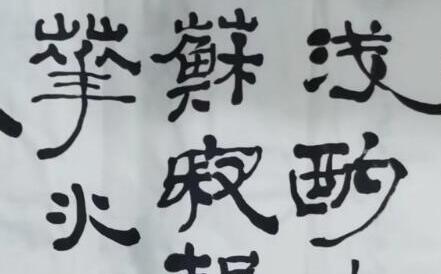 浅酌
蘇寂
華火